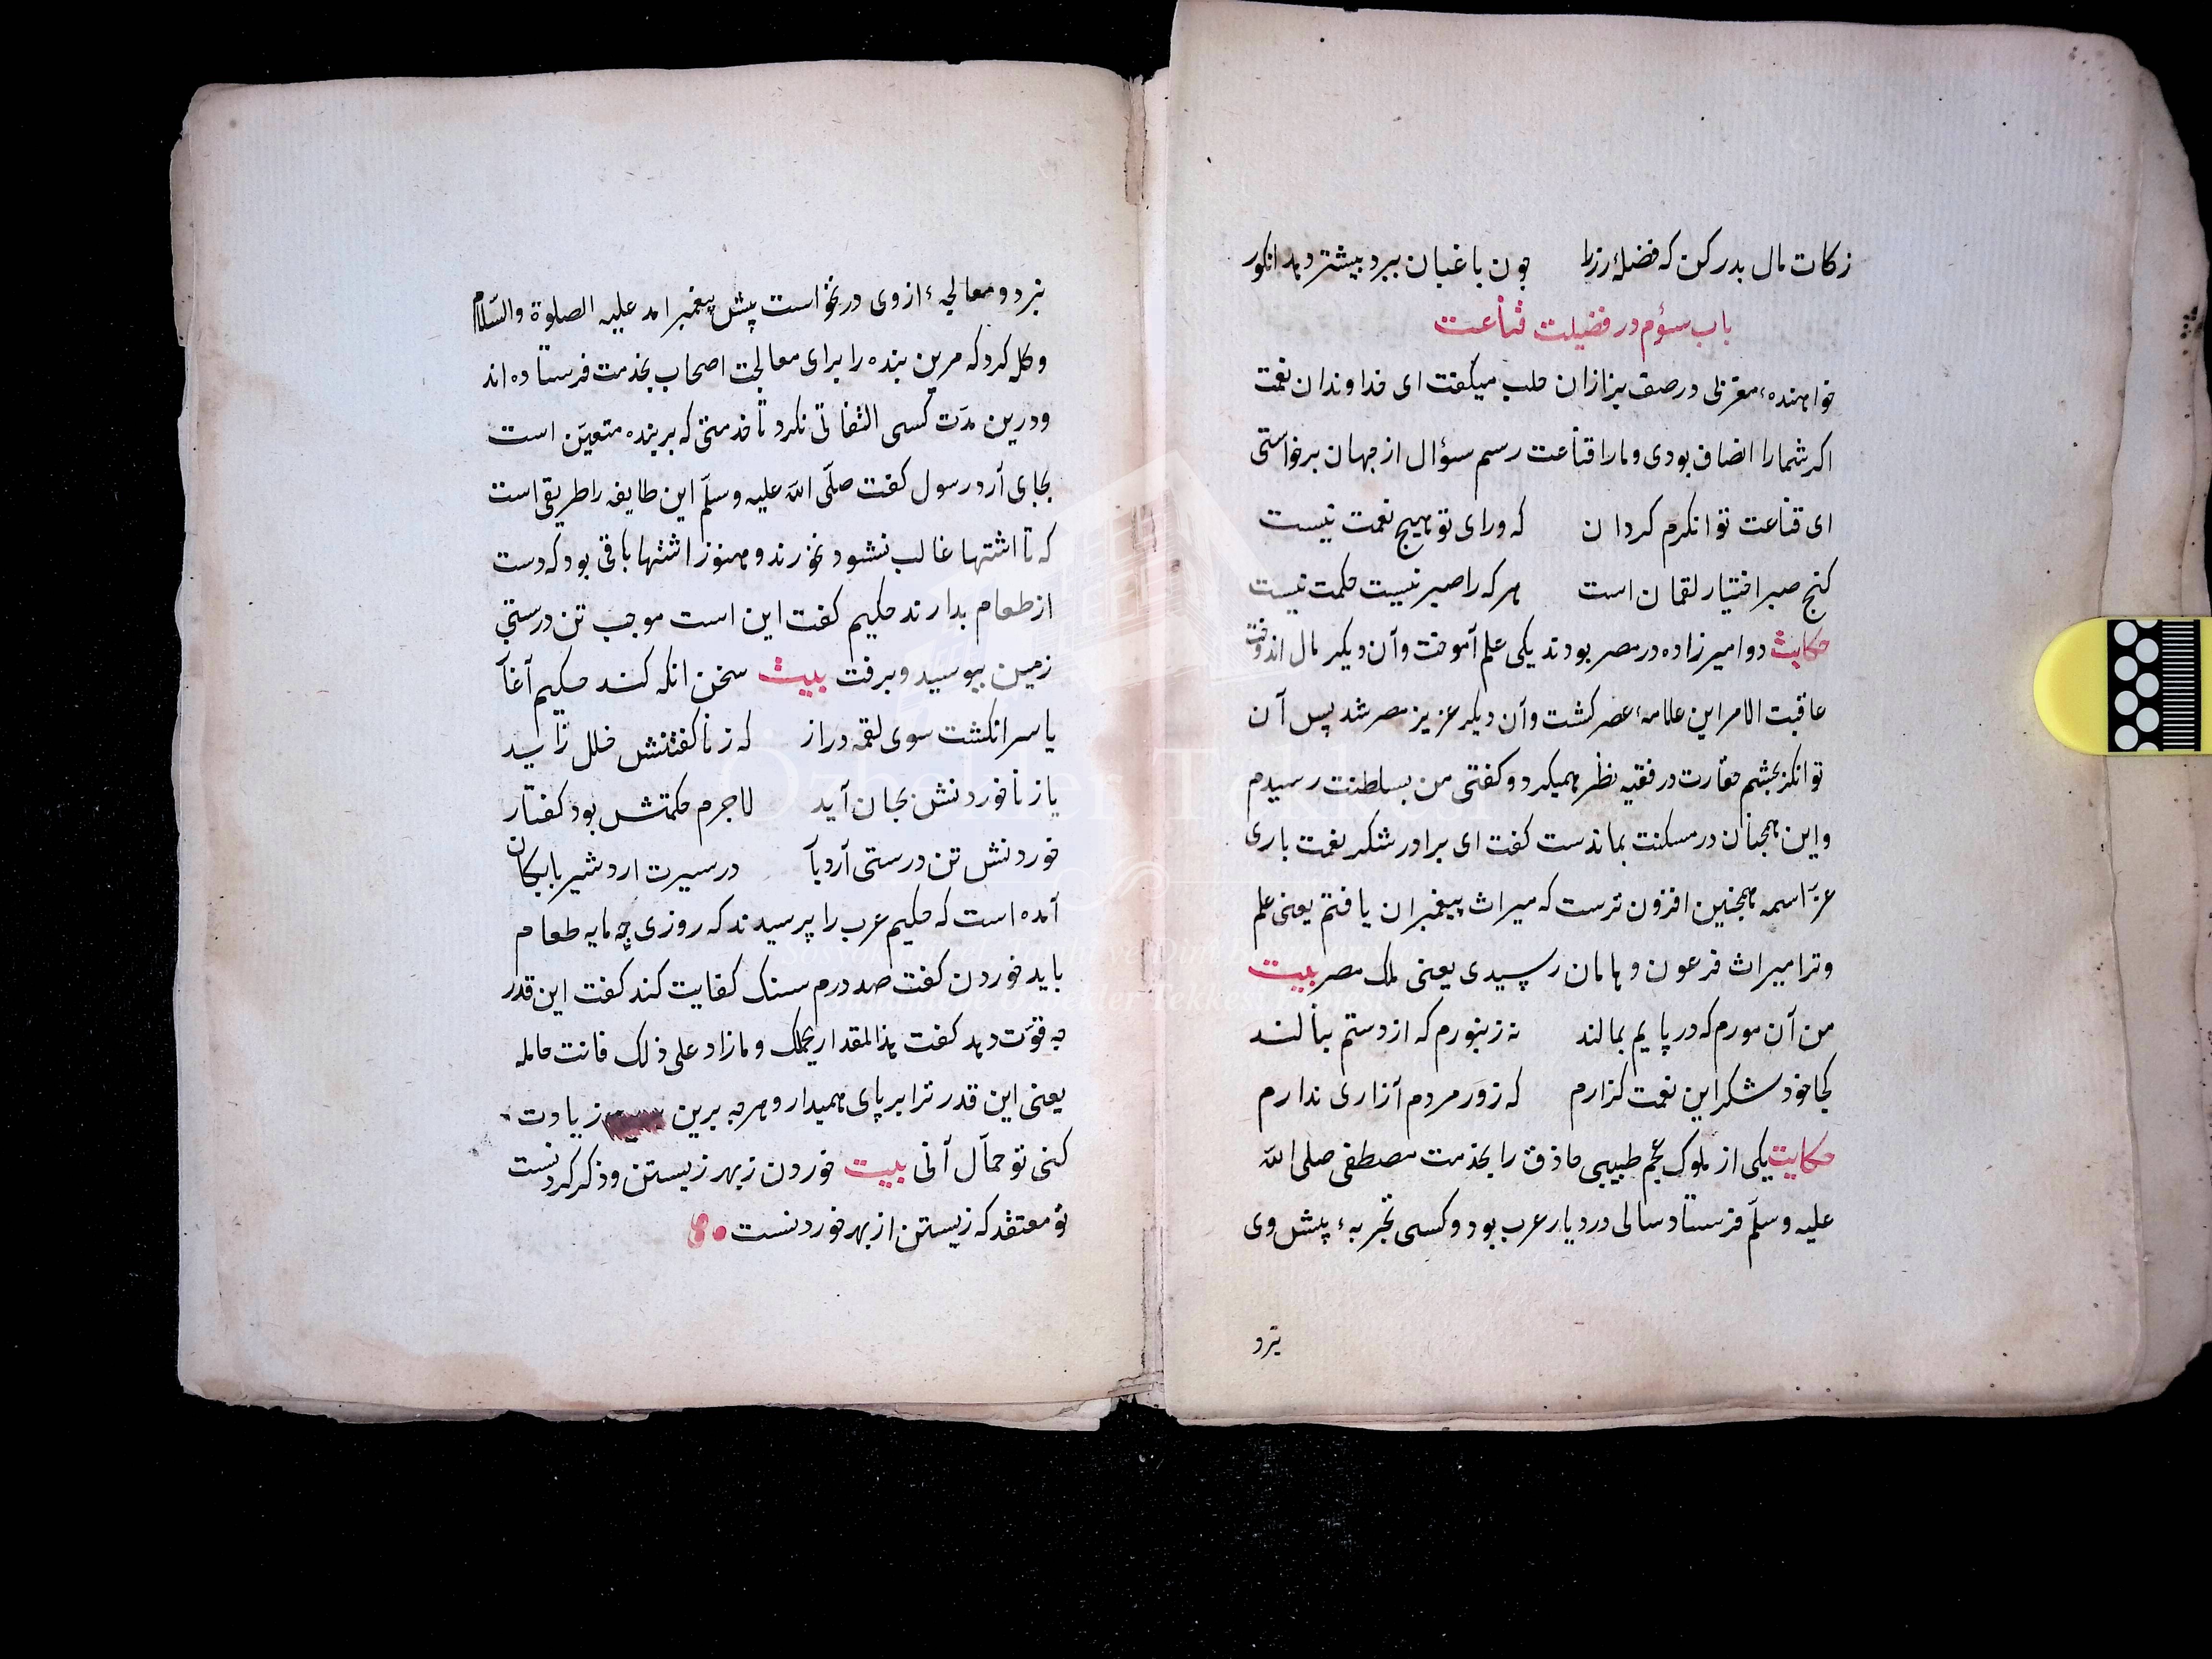 زکات مال بدر کن که فضلهٔ رزرا چون باغبان ببرد بیشتر دهد انکور
باب سؤم در فضیلت قناعت
خواهنده مغربی در صف بزازان حلب میکفت ای خداوندان نعمت
اکر شمارا انصاف بودی و مارا قناعت رسم سؤال از جهان برخواستی
ای قناعت توانکرم کردان که ورای تو هیچ نعمت نیست
کنج صبر اختیار لقمان است هر که را صبر نیست حکمت نیست
حکایت دو امیرزاده در مصر بودند یکی علم آموخت وآن دیکر مال اندوخت
عاقبت الامر این علامهٔ عصر کشت وآن دیکر عزیز مصر شد پس آن
توانکر بچشم حقارت در فقیه نظر همیکرد و کفتی من بسلطنت رسیدم
واین همچنان در مسکنت بماندست کفت ای برادر شکر نعمت باری
عزّ اسمه همچنین افزون ترست که میراث پیغمبران یافتم یعنی علم
وترا میراث فرعون و هامان رسیدی یعنی ملک مصر بیت
من آن مورم که در پایم بمالند نه زنبورم که از دستم بنالند
کجا خود شکر این نعمت کزارم که زور مردم آزاری ندارم
حکایت یکی از ملوک عجم طبیبی حاذق را بخدمت مصطفی صلی الله
علیه وسلّم فرستاد سالی در دیار عرب بود و کسی تجربهٔ پیش وی
نبرد
نبرد و معالجهٔ از وی در نخواست پیش پیغمبر امد علیه الصلوة والسّلام
وکله کرد که مرین بنده را برای معالجت اصحاب بخدمت فرستاده اند
ودرین مدّت کسی التفاتی نکرد تا خدمتی که بر بنده متعیّن است
بجای آرد رسول کفت صلّی الله علیه وسلّم این طایفه را طریقی است
که تا اشتها غالب نشود نخورند و هنوز اشتها باقی بود که دست
از طعام بدارند حکیم کفت این است موجب تن درستی
زمین ببوسید وبرفت بیت سخن انکه کند حکیم آغاز
یا سر انکشت سوی لقمه دراز که ز ناکفتنش خلل زاید
یا ز ناخوردنش بجان آید لاجرم حکمتش بود کفتار
خوردنش تن درستی آرد بار در سیرت اردشیر بابکان
آمده است که حکیم عرب را پرسیدند که روزی چه مایه طعام
باید خوردن کفت صد درم سنک کفایت کند کفت این قدر
چه قوّت دهد کفت هذا المقدار یحملک وما زاد علی ذلک فانت حامله
یعنی این قدر ترا بر پای همیدارد و هر چه برین زیادت
کنی تو حمّال آنی بیت خوردن ز بهر زیستن و ذکر کردنست
تو معتقد که زیستن از بهر خوردنست